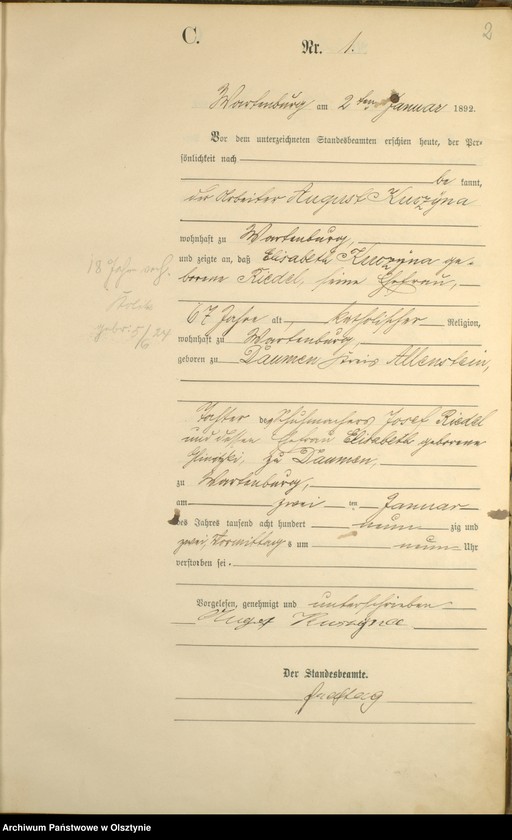 2
C.
Nr. 1.
Wartenburg am 2ten Januar 1892.
Vor dem unterzeichneten Standesbeamten erschien heute, der Per-
sönlichkeit nach
be kannt,
der Arbeiter August Kuszÿna
wohnhaft zu Wartenburg,
und zeigte an, daß Elisabeth Kuszÿna ge-
borene Riedel, seine Ehefrau,
67 Jahre alt, katholischer Religion,
wohnhaft zu Wartenburg,
geboren zu Daumen, Kreis Allenstein,
Tochter des Schuhmachers Josef Riedel
und dessen Ehefrau Elisabeth geborene
zu Daumen,
zu Wartenburg,
am zwei ten Januar
des Jahres tausend acht hundert neun zig und
zwei, Vormittags um neun Uhr
verstorben sei.
Vorgelesen, genehmigt und unterschrieben
August Kuszyna
Der Standesbeamte.
18 Jahr verh.
gebor. 5/6 24
Archiwum Państwowe w Olsztynie